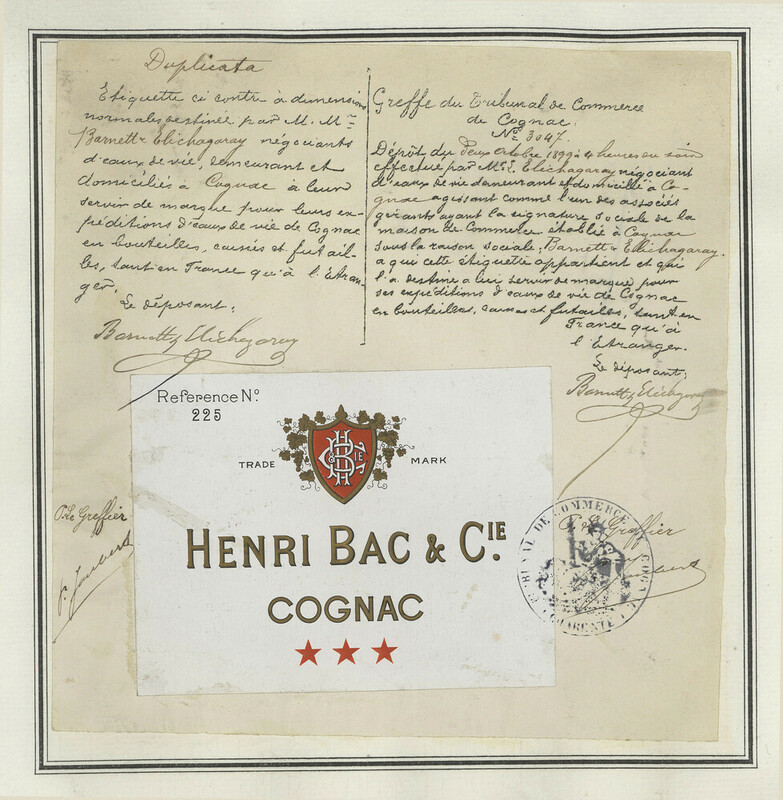 Duplicata
Etiquette ci contre à dimensions
normales destinée par M. Mrs
Barnett & Elichagaray négociants
d'eaux de vie, demeurant et
domiciliés à Cognac à leur
servir de marque pour leurs ex-
péditions d'eaux de vie de Cognac
en bouteilles, caisses et futail-
les, tant en France qu'à l'Etran-
ger.
Le déposant:
Barnett & Elichagaray
Greffe du Tribunal de Commerce
de Cognac.
No 3047.
Dépôt du deux Octobre 1899 à 4 heures du soir
effectué par Mr. Elichagaray négociant
d'eaux de vie demeurant et domicilié à Co-
gnac agissant comme l'un des associés
gérants ayant la signature sociale de la
maison de Commerce établie à Cognac
sous la raison sociale: Barnett & Elichagaray.
a qui cette étiquette appartient et qui
l'a destiné a lui servir de marque pour
ses expéditions d'eaux de vie de Cognac
en bouteilles, caisses et futailles, tant en
France qu'à
l'Etranger.
Le déposant:
Barnett & Elichagaray
Reference No.
225
TRADE MARK
HENRI BAC & CIE.
COGNAC
Greffier
P. Joubert
Greffier
Joubert
TRIBUNAL DE COMMERCE
COGNAC
CHARENTE